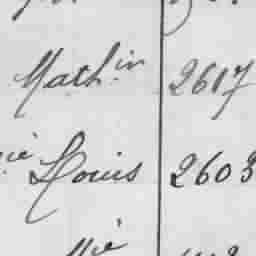 Math.in 2617
ie Louis 2603
ie